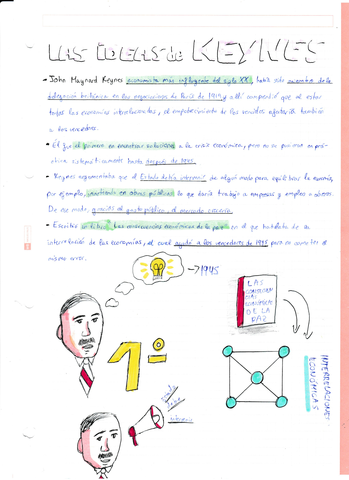 LAS IDEAS de KEYNES
- John Maynard Keynes economista más influyente del siglo XX, había sido miembro de la
delegación británica en las negociaciones de París de 1919 y allí comprendió que al estar
todas las economías interrelacionadas, el empobrecimiento de los vencidos afectaría también
a los vencedores.
- Él fue el primero en encontrar soluciones a la crisis económica, pero no se pusieron en prác-
tica sistemáticamente hasta después de 1945.
- Keynes argumentaba que el Estado debía intervenir de algún modo para equilibrar la economía,
por ejemplo, invirtiendo en obras públicas, lo que daría trabajo a empresas y empleo a obreros.
De ese modo, gracias al gasto público, el mercado crecería.
- Escribió un libro, Las consecuencias económicas de la paz en el que hablaba de esa
interrelación de las economías, el cual ayudó a los vencedores de 1945 para no cometer el
mismo error.
1945
1º
LAS
CONSECUEN
CIAS
ECONÓMICAS
DE LA
PAZ
INTERRELACIONES
ECONÓMICAS
Estado
debe
intervenir